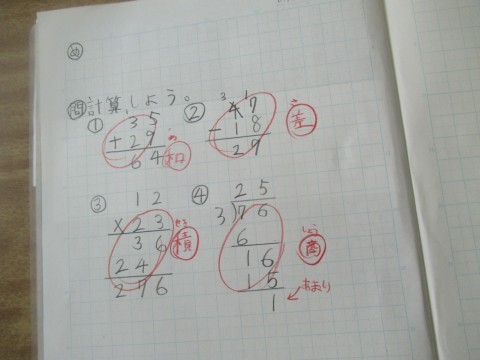 め
問 計算しよう。
①
35
+29
64
わ
和
②
3 1
47
-18
29
さ
差
③
12
×23
36
24
276
せき
積
④
25
3)76
6
16
15
1
しょう
商
あまり